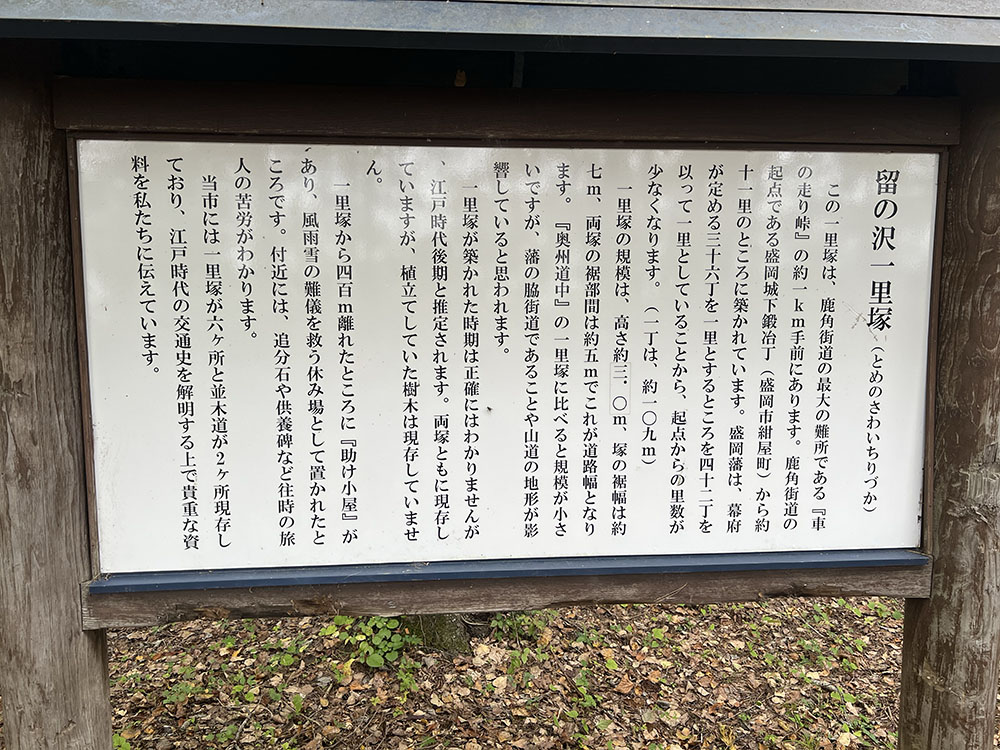 留の沢一里塚（とめのさわいちりづか）
この一里塚は、鹿角街道の最大の難所である『車
の走り峠』の約一km手前にあります。鹿角街道の
起点である盛岡城下鍛冶丁（盛岡市紺屋町）から約
十一里のところに築かれています。盛岡藩は、幕府
が定める三十六丁を一里とするところを四十二丁を
以って一里としていることから、起点からの里数が
少なくなります。（一丁は、約一〇九m）
一里塚の規模は、高さ約三．〇m、塚の裾幅は約
七m、両塚の裾部間は約五mでこれが道路幅となり
ます。『奥州道中』の一里塚に比べると規模が小さ
いですが、藩の脇街道であることや山道の地形が影
響していると思われます。
一里塚が築かれた時期は正確にはわかりませんが
、江戸時代後期と推定されます。両塚ともに現存し
ていますが、植立てしていた樹木は現存していませ
ん。
一里塚から四百m離れたところに『助け小屋』が
あり、風雨雪の難儀を救う休み場として置かれたと
ころです。付近には、追分石や供養碑など往時の旅
人の苦労がわかります。
当市には一里塚が六ヶ所と並木道が2ヶ所現存し
ており、江戸時代の交通史を解明する上で貴重な資
料を私たちに伝えています。